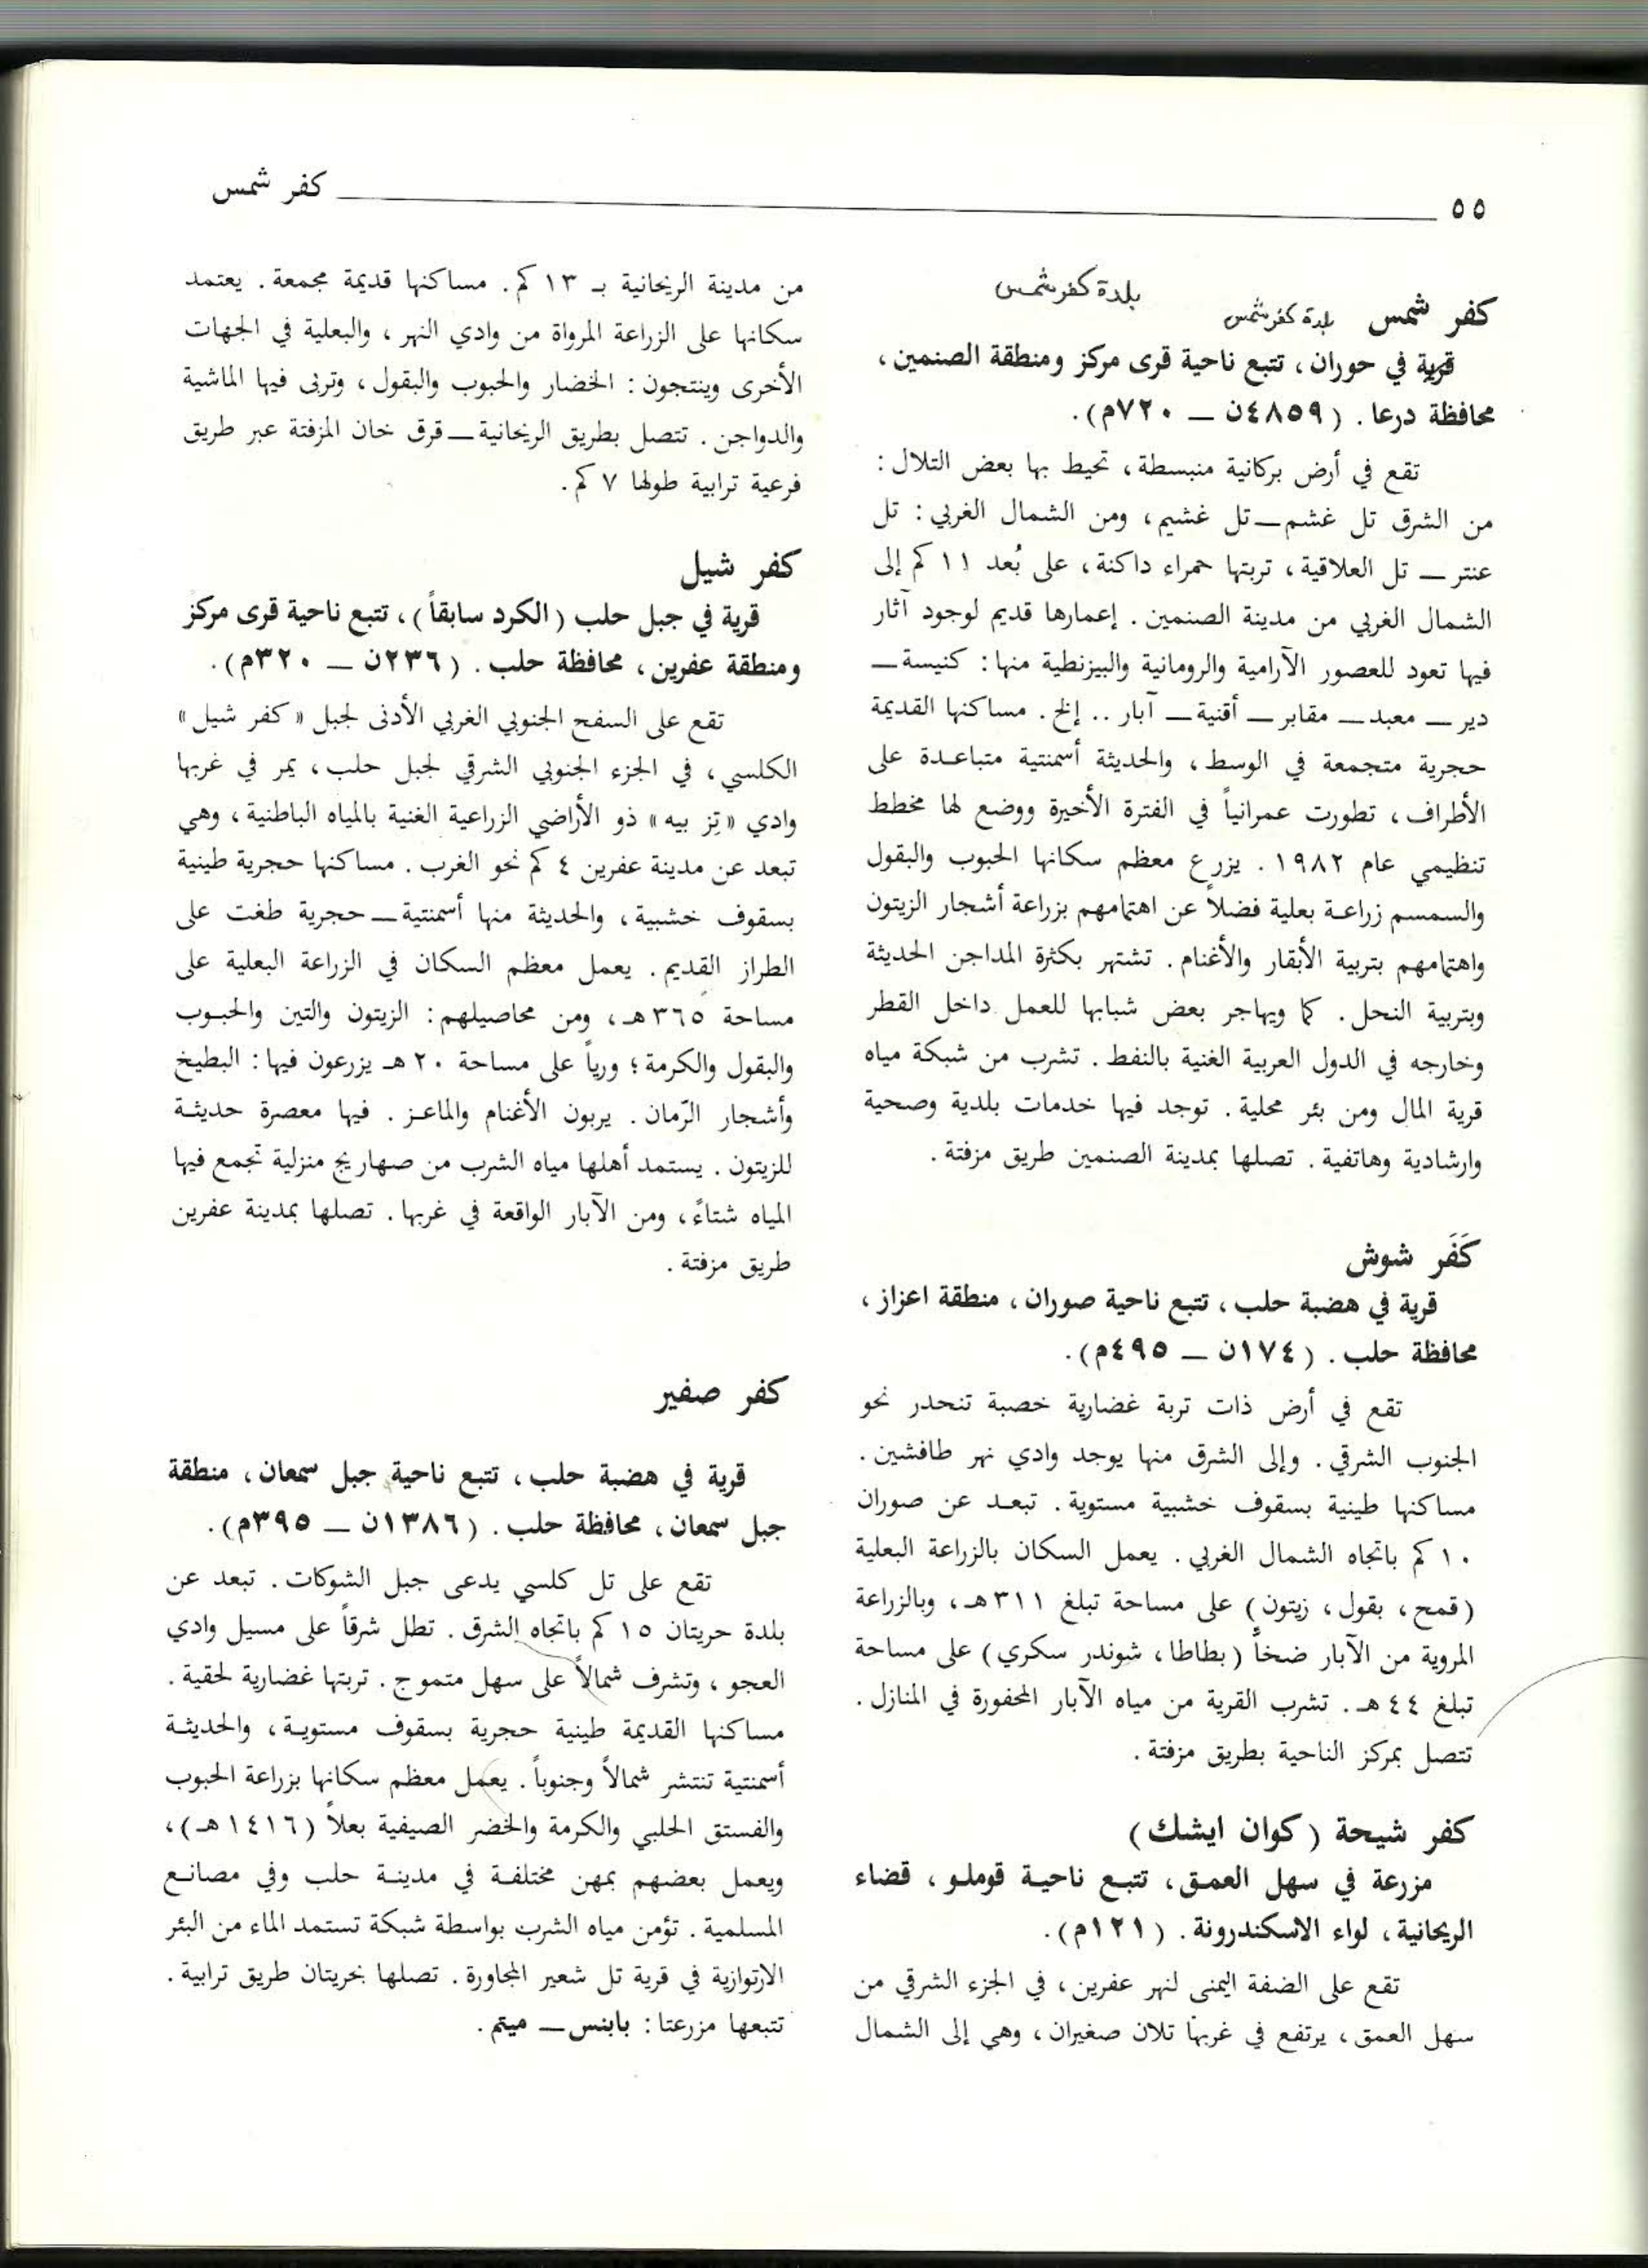 ٥٥ كفر شمس
بلدة كفرشمس
كفر شمس بلدة كفرشمس
قرية في حوران، تتبع ناحية قرى مركز ومنطقة الصنمين،
محافظة درعا. (٤٨٥٩ن ـ ٧٢٠م).
تقع في أرض بركانية منبسطة، تحيط بها بعض التلال:
من الشرق تل غشم ـ تل غشيم، ومن الشمال الغربي: تل
عنتر ـ تل العلاقية، تربتها حمراء داكنة، على بُعد ١١ كم إلى
الشمال الغربي من مدينة الصنمين. إعمارها قديم لوجود آثار
فيها تعود للعصور الآرامية والرومانية والبيزنطية منها: كنيسة ـ
دير ـ معبد ـ مقابر ـ أقنية ـ آبار .. إلخ. مساكنها القديمة
حجرية متجمعة في الوسط، والحديثة أسمنتية متباعدة على
الأطراف، تطورت عمرانياً في الفترة الأخيرة ووضع لها مخطط
تنظيمي عام ١٩٨٢. يزرع معظم سكانها الحبوب والبقول
والسمسم زراعة بعلية فضلاً عن اهتمامهم بزراعة أشجار الزيتون
واهتمامهم بتربية الأبقار والأغنام. تشتهر بكثرة المداجن الحديثة
وبتربية النحل. كما ويهاجر بعض شبابها للعمل داخل القطر
وخارجه في الدول العربية الغنية بالنفط. تشرب من شبكة مياه
قرية المال ومن بئر محلية. توجد فيها خدمات بلدية وصحية
وارشادية وهاتفية. تصلها بمدينة الصنمين طريق مزفتة.
كَفَر شوش
قرية في هضبة حلب، تتبع ناحية صوران، منطقة اعزاز،
محافظة حلب. (١٧٤ن ـ ٤٩٥م).
تقع في أرض ذات تربة غضارية خصبة تنحدر نحو
الجنوب الشرقي. وإلى الشرق منها يوجد وادي نهر طافشين.
مساكنها طينية بسقوف خشبية مستوية. تبعد عن صوران
١٠ كم باتجاه الشمال الغربي. يعمل السكان بالزراعة البعلية
(قمح، بقول، زيتون) على مساحة تبلغ ٣١١هـ، وبالزراعة
المروية من الآبار ضخاً (بطاطا، شوندر سكري) على مساحة
تبلغ ٤٤هـ. تشرب القرية من مياه الآبار المحفورة في المنازل.
تتصل بمركز الناحية بطريق مزفتة.
كفر شيحة (كوان ايشك)
مزرعة في سهل العمق، تتبع ناحية قوملو، قضاء
الريحانية، لواء الاسكندرونة. (١٢١م).
تقع على الضفة اليمنى لنهر عفرين، في الجزء الشرقي من
سهل العمق، يرتفع في غربها تلان صغيران، وهي إلى الشمال
من مدينة الريحانية بـ ١٣ كم. مساكنها قديمة مجمعة. يعتمد
سكانها على الزراعة المرواة من وادي النهر، والبعلية في الجهات
الأخرى وينتجون: الخضار والحبوب والبقول، وتربى فيها الماشية
والدواجن. تتصل بطريق الريحانية ـ قرق خان المزفتة عبر طريق
فرعية ترابية طولها ٧ كم.
كفر شيل
قرية في جبل حلب (الكرد سابقاً)، تتبع ناحية قرى مركز
ومنطقة عفرين، محافظة حلب. (٢٣٦ن ـ ٣٢٠م).
تقع على السفح الجنوبي الغربي الأدنى لجبل «كفر شيل»
الكلسي، في الجزء الجنوبي الشرقي لجبل حلب، يمر في غربها
وادي «تِز بيه» ذو الأراضي الزراعية الغنية بالمياه الباطنية، وهي
تبعد عن مدينة عفرين ٤ كم نحو الغرب. مساكنها حجرية طينية
بسقوف خشبية، والحديثة منها أسمنتية ـ حجرية طغت على
الطراز القديم. يعمل معظم السكان في الزراعة البعلية على
مساحة ٣٦٥هـ، ومن محاصيلهم: الزيتون والتين والحبوب
والبقول والكرمة؛ ورياً على مساحة ٢٠ هـ يزرعون فيها: البطيخ
وأشجار الرّمان. يربون الأغنام والماعز. فيها معصرة حديثة
للزيتون. يستمد أهلها مياه الشرب من صهاريج منزلية تجمع فيها
المياه شتاءً، ومن الآبار الواقعة في غربها. تصلها بمدينة عفرين
طريق مزفتة.
كفر صفير
قرية في هضبة حلب، تتبع ناحية جبل سمعان، منطقة
جبل سمعان، محافظة حلب. (١٣٨٦ن ـ ٣٩٥م).
تقع على تل كلسي يدعى جبل الشوكات. تبعد عن
بلدة حريتان ١٥ كم باتجاه الشرق. تطل شرقاً على مسيل وادي
العجو، وتشرف شمالاً على سهل متموج. تربتها غضارية لحقية.
مساكنها القديمة طينية حجرية بسقوف مستوية، والحديثة
أسمنتية تنتشر شمالاً وجنوباً. يعمل معظم سكانها بزراعة الحبوب
والفستق الحلبي والكرمة والخضر الصيفية بعلاً (١٤١٦هـ)،
ويعمل بعضهم بمهن مختلفة في مدينة حلب وفي مصانع
المسلمية. تؤمن مياه الشرب بواسطة شبكة تستمد الماء من البئر
الارتوازية في قرية تل شعير المجاورة. تصلها بحريتان طريق ترابية.
تتبعها مزرعتا: بابنس ـ ميتم.